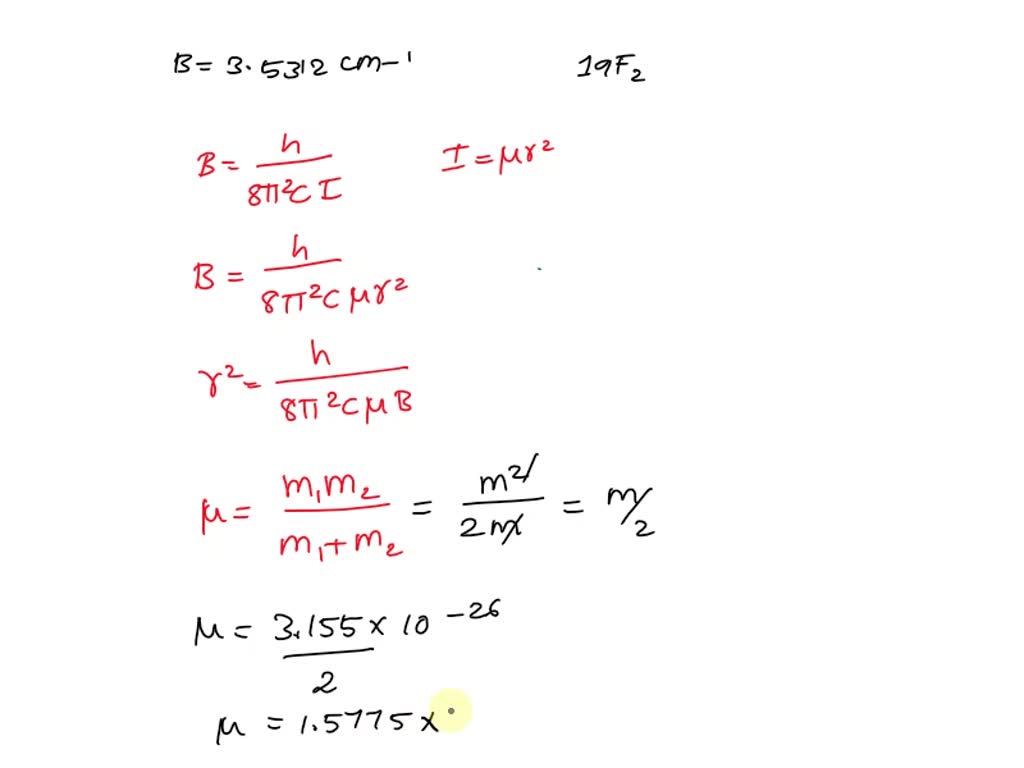 B = 3.5312 cm-1 19F2
B = h / 8π²CI I = μr²
B = h / 8π²Cμr²
r² = h / 8π²CμB
μ = m₁m₂ / m₁+m₂ = m² / 2m = m/2
μ = 3.155 × 10⁻²⁶ / 2
μ = 1.5775 ×